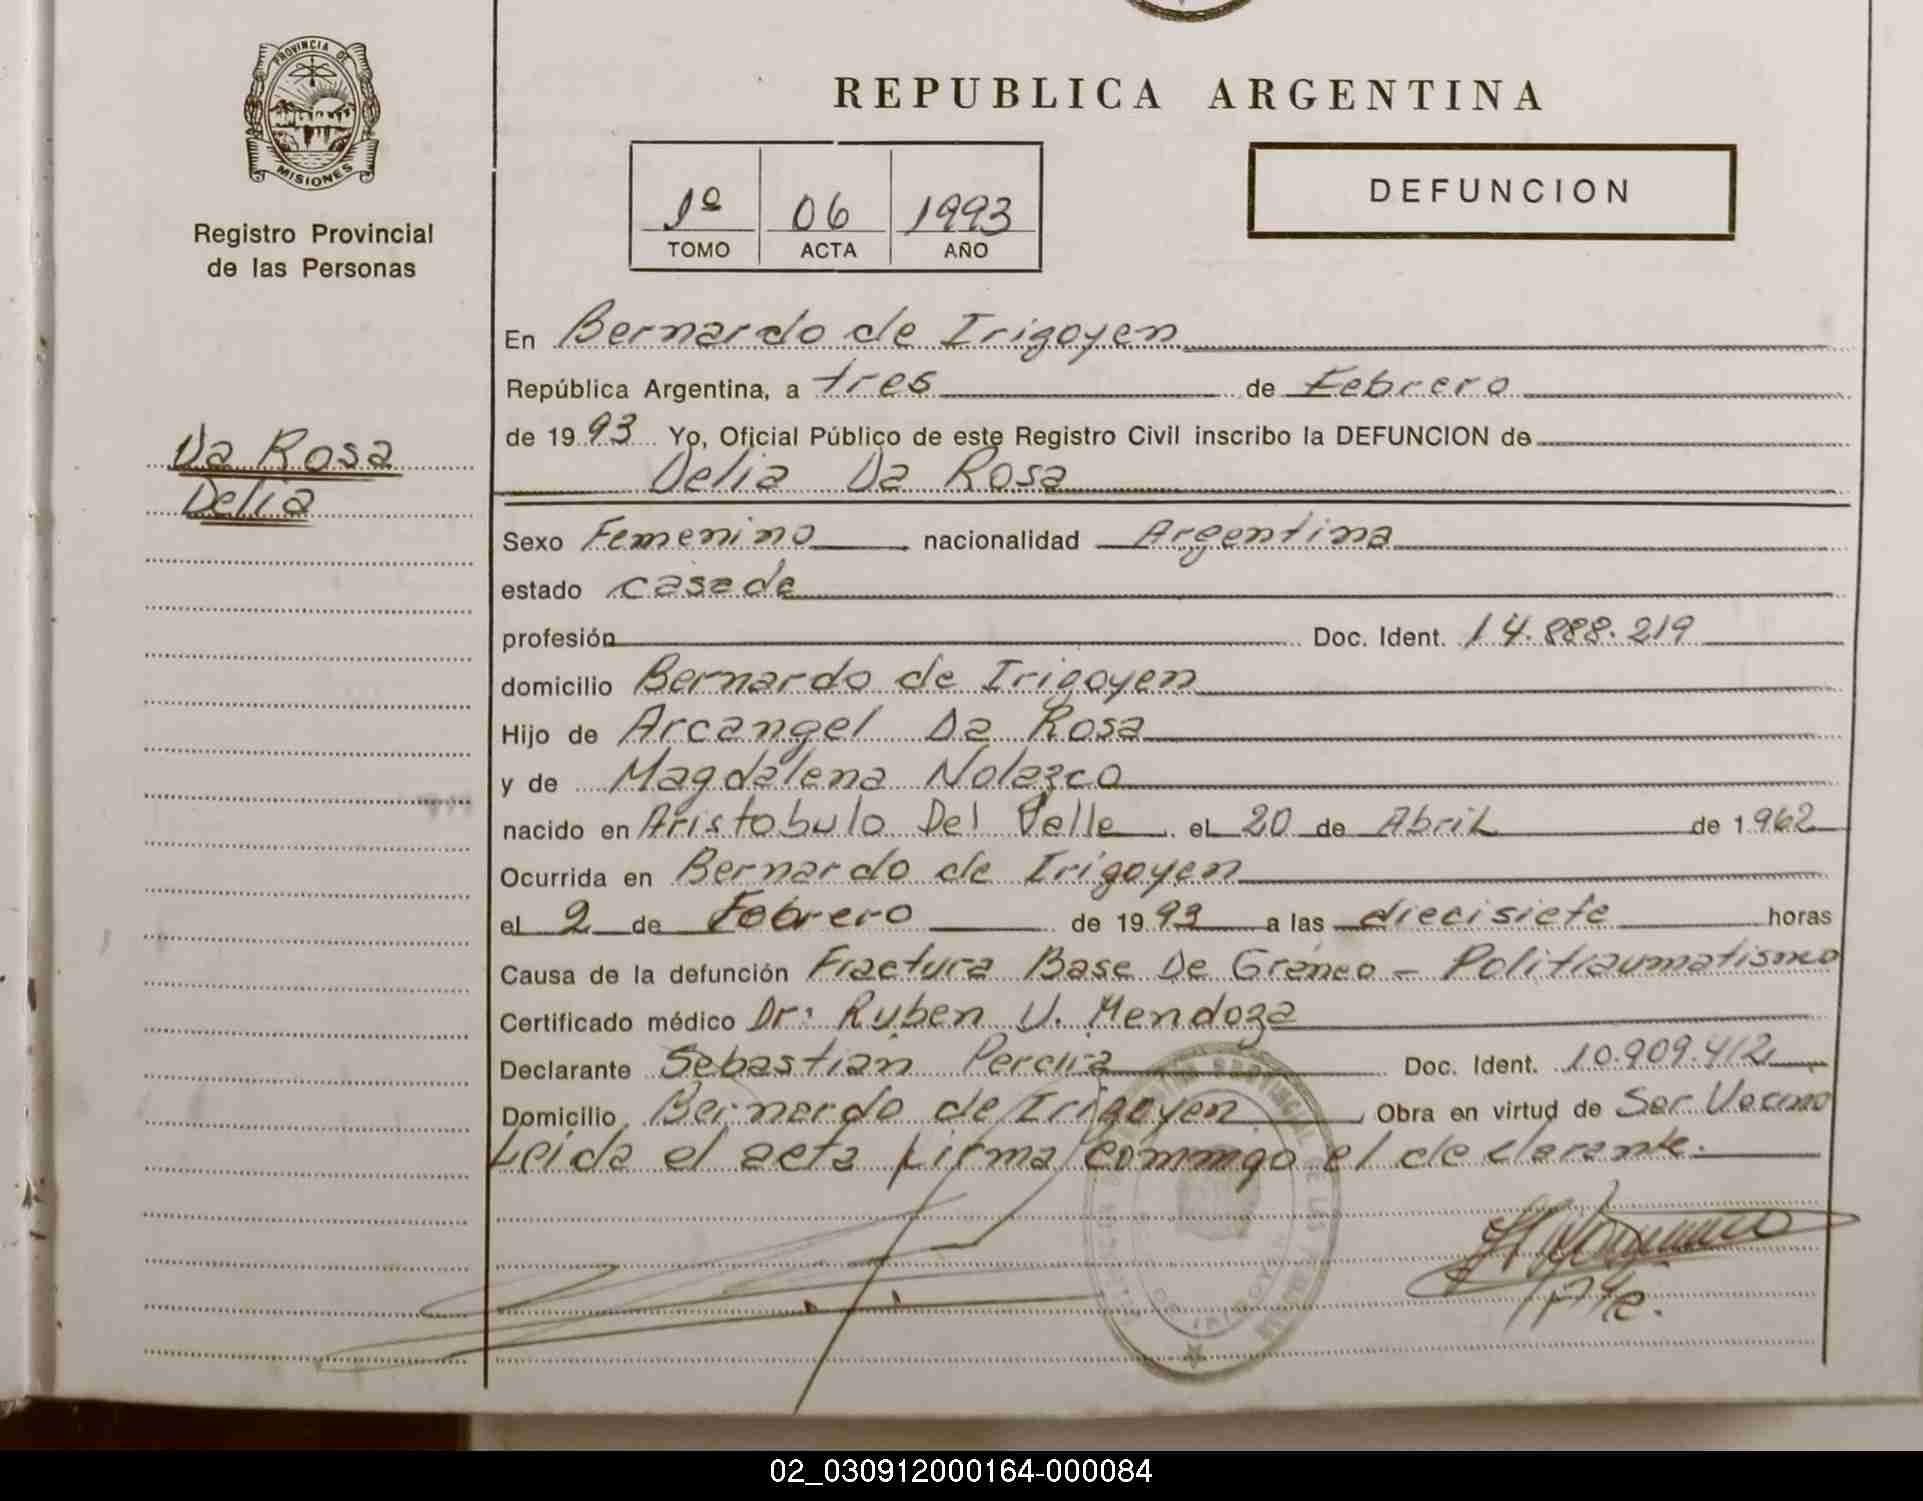 PROVINCIA DE
MISIONES
Registro Provincial
de las Personas
REPUBLICA ARGENTINA
1º 06 1993
TOMO ACTA AÑO
DEFUNCION
En Bernardo de Irigoyen
República Argentina, a tres de Febrero
de 1993 Yo, Oficial Público de este Registro Civil inscribo la DEFUNCION de
Delia Da Rosa
Da Rosa
Delia
Sexo Femenino nacionalidad Argentina
estado casada
profesión Doc. Ident. 14.888.219
domicilio Bernardo de Irigoyen
Hijo de Arcangel Da Rosa
y de Magdalena Nolazco
nacido en Aristobulo Del Valle el 20 de Abril de 1962
Ocurrida en Bernardo de Irigoyen
el 2 de Febrero de 1993 a las diecisiete horas
Causa de la defunción Fractura Base De Craneo - Politraumatismo
Certificado médico Dr: Ruben V. Mendoza
Declarante Sebastian Pereira Doc. Ident. 10.909.412
Domicilio Bernardo de Irigoyen Obra en virtud de Ser Vecino
Leida el acta firma conmigo el declarante.
02_030912000164-000084